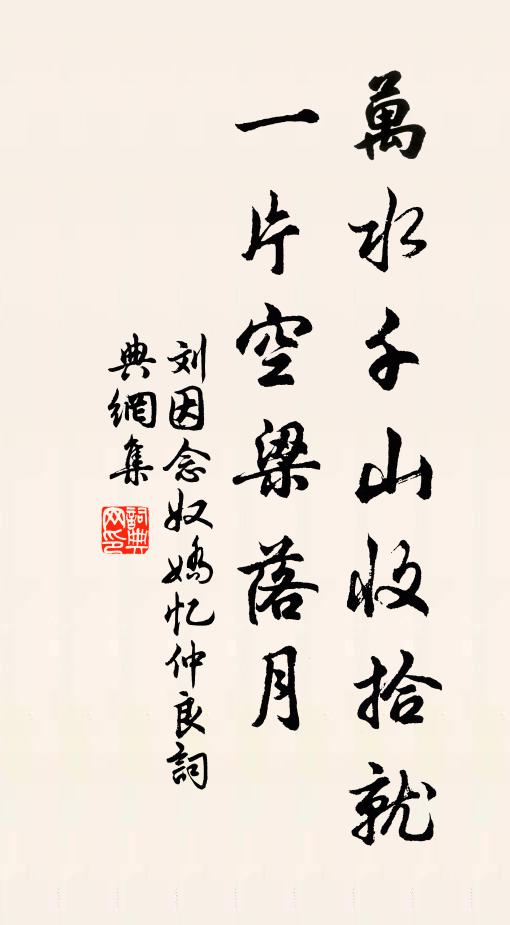 萬水千山收拾就
一片空梁落月
刘因念奴嬌忆仲良詞
典網集
詞典網印